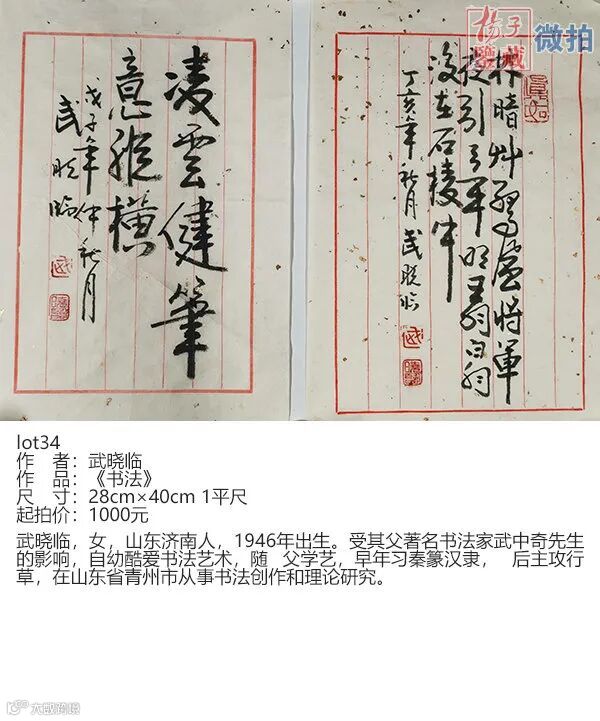 揚子
鑒藏
微拍
凌雲健筆
意縱橫
戊子年仲秋月
武晓临
林暗艸驚風將軍
夜引弓平明尋白羽
沒在石棱中
丁亥年秋月武晓临
lot34
作 者：武晓临
作 品：《书法》
尺 寸：28cm×40cm 1平尺
起拍价：1000元
武晓临，女，山东济南人，1946年出生。受其父著名书法家武中奇先生
的影响，自幼酷爱书法艺术，随 父学艺，早年习秦篆汉隶， 后主攻行
草，在山东省青州市从事书法创作和理论研究。